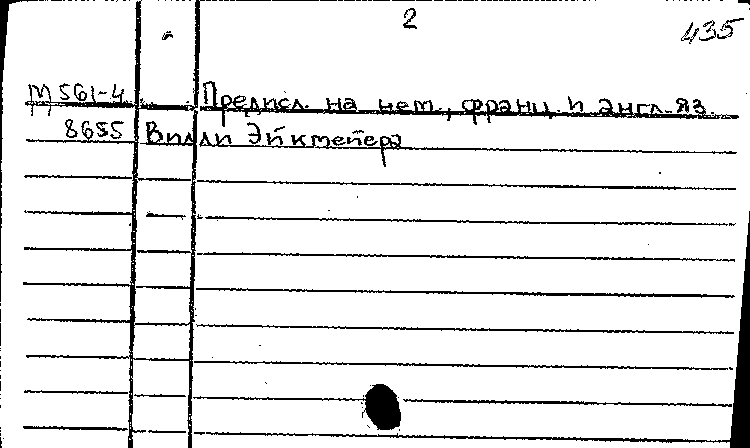 2
435
М 561-4 Предисл. на нем., франц. и англ. яз.
8655 Вилли Эйкмейера